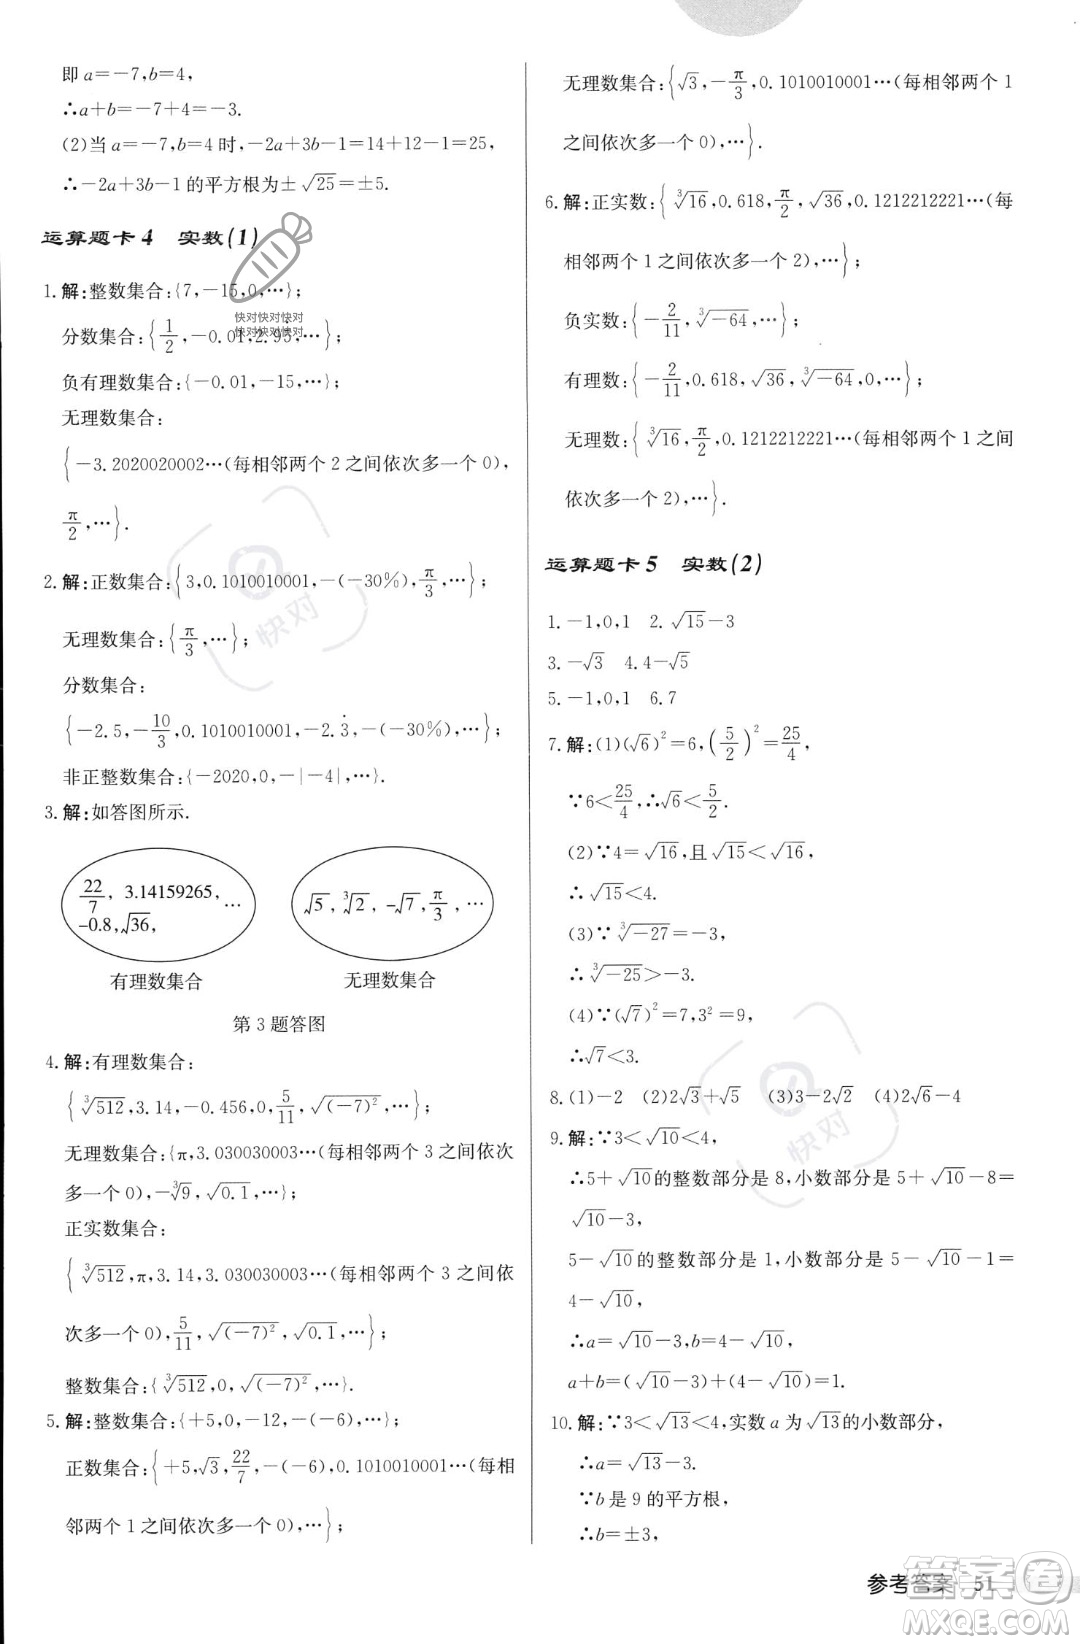 即a=-7,b=4,
∴a+b=-7+4=-3.
(2)当a=-7,b=4时,-2a+3b-1=14+12-1=25,
∴-2a+3b-1的平方根为±√25=±5.
运算题卡4 实数(1)
1.解:整数集合:{7,-15,0,…};
分数集合:{1/2,-0.01,2.95,…};
负有理数集合:{-0.01,-15,…};
无理数集合:
{-3.2020020002…(每相邻两个2之间依次多一个0),
π/2,…}.
2.解:正数集合:{3,0.1010010001,-(-30%),π/3,…};
无理数集合:{π/3,…};
分数集合:
{-2.5,-10/3,0.1010010001,-2.3̇,-(-30%),…};
非正整数集合:{-2020,0,-|-4|,…}.
3.解:如答图所示.
22/7, 3.14159265, …
-0.8,√36,
√5,∛2,-√7,π/3,…
有理数集合 无理数集合
第3题答图
4.解:有理数集合:
{∛512,3.14,-0.456,0,5/11,√(-7)²,…};
无理数集合:{π,3.030030003…(每相邻两个3之间依次
多一个0),-∛9,√0.1,…};
正实数集合:
{∛512,π,3.14,3.030030003…(每相邻两个3之间依
次多一个0),5/11,√(-7)²,√0.1,…};
整数集合:{∛512,0,√(-7)²,…}.
5.解:整数集合:{+5,0,-12,-(-6),…};
正数集合:{+5,√3,22/7,-(-6),0.1010010001…(每相
邻两个1之间依次多一个0),…};
无理数集合:{√3,-π/3,0.1010010001…(每相邻两个1
之间依次多一个0),…}.
6.解:正实数:{∛16,0.618,π/2,√36,0.1212212221…(每
相邻两个1之间依次多一个2),…};
负实数:{-2/11,∛-64,…};
有理数:{-2/11,0.618,√36,∛-64,0,…};
无理数:{∛16,π/2,0.1212212221…(每相邻两个1之间
依次多一个2),…}.
运算题卡5 实数(2)
1.-1,0,1 2.√15-3
3.-√3 4.4-√5
5.-1,0,1 6.7
7.解:(1)(√6)²=6,(5/2)²=25/4,
∵6<25/4,∴√6<5/2.
(2)∵4=√16,且√15<√16,
∴√15<4.
(3)∵∛-27=-3,
∴∛-25>-3.
(4)∵(√7)²=7,3²=9,
∴√7<3.
8.(1)-2 (2)2√3+√5 (3)3-2√2 (4)2√6-4
9.解:∵3<√10<4,
∴5+√10的整数部分是8,小数部分是5+√10-8=
√10-3,
5-√10的整数部分是1,小数部分是5-√10-1=
4-√10,
∴a=√10-3,b=4-√10,
a+b=(√10-3)+(4-√10)=1.
10.解:∵3<√13<4,实数a为√13的小数部分,
∴a=√13-3.
∵b是9的平方根,
∴b=±3,
参考答案 51
快对快对快对
快对快对快对
快对
快对
答案卷
MXQE.COM